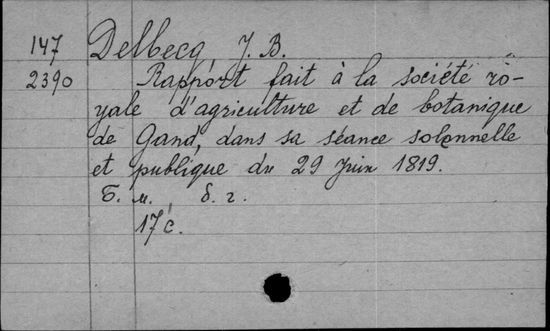 147 Delbecq J. B.
2390 Rapport fait à la société ro-
yale d'agriculture et de botanique
de Gand, dans sa séance solennelle
et publique du 29 Juin 1819.
Б. м. б. г.
17 с.